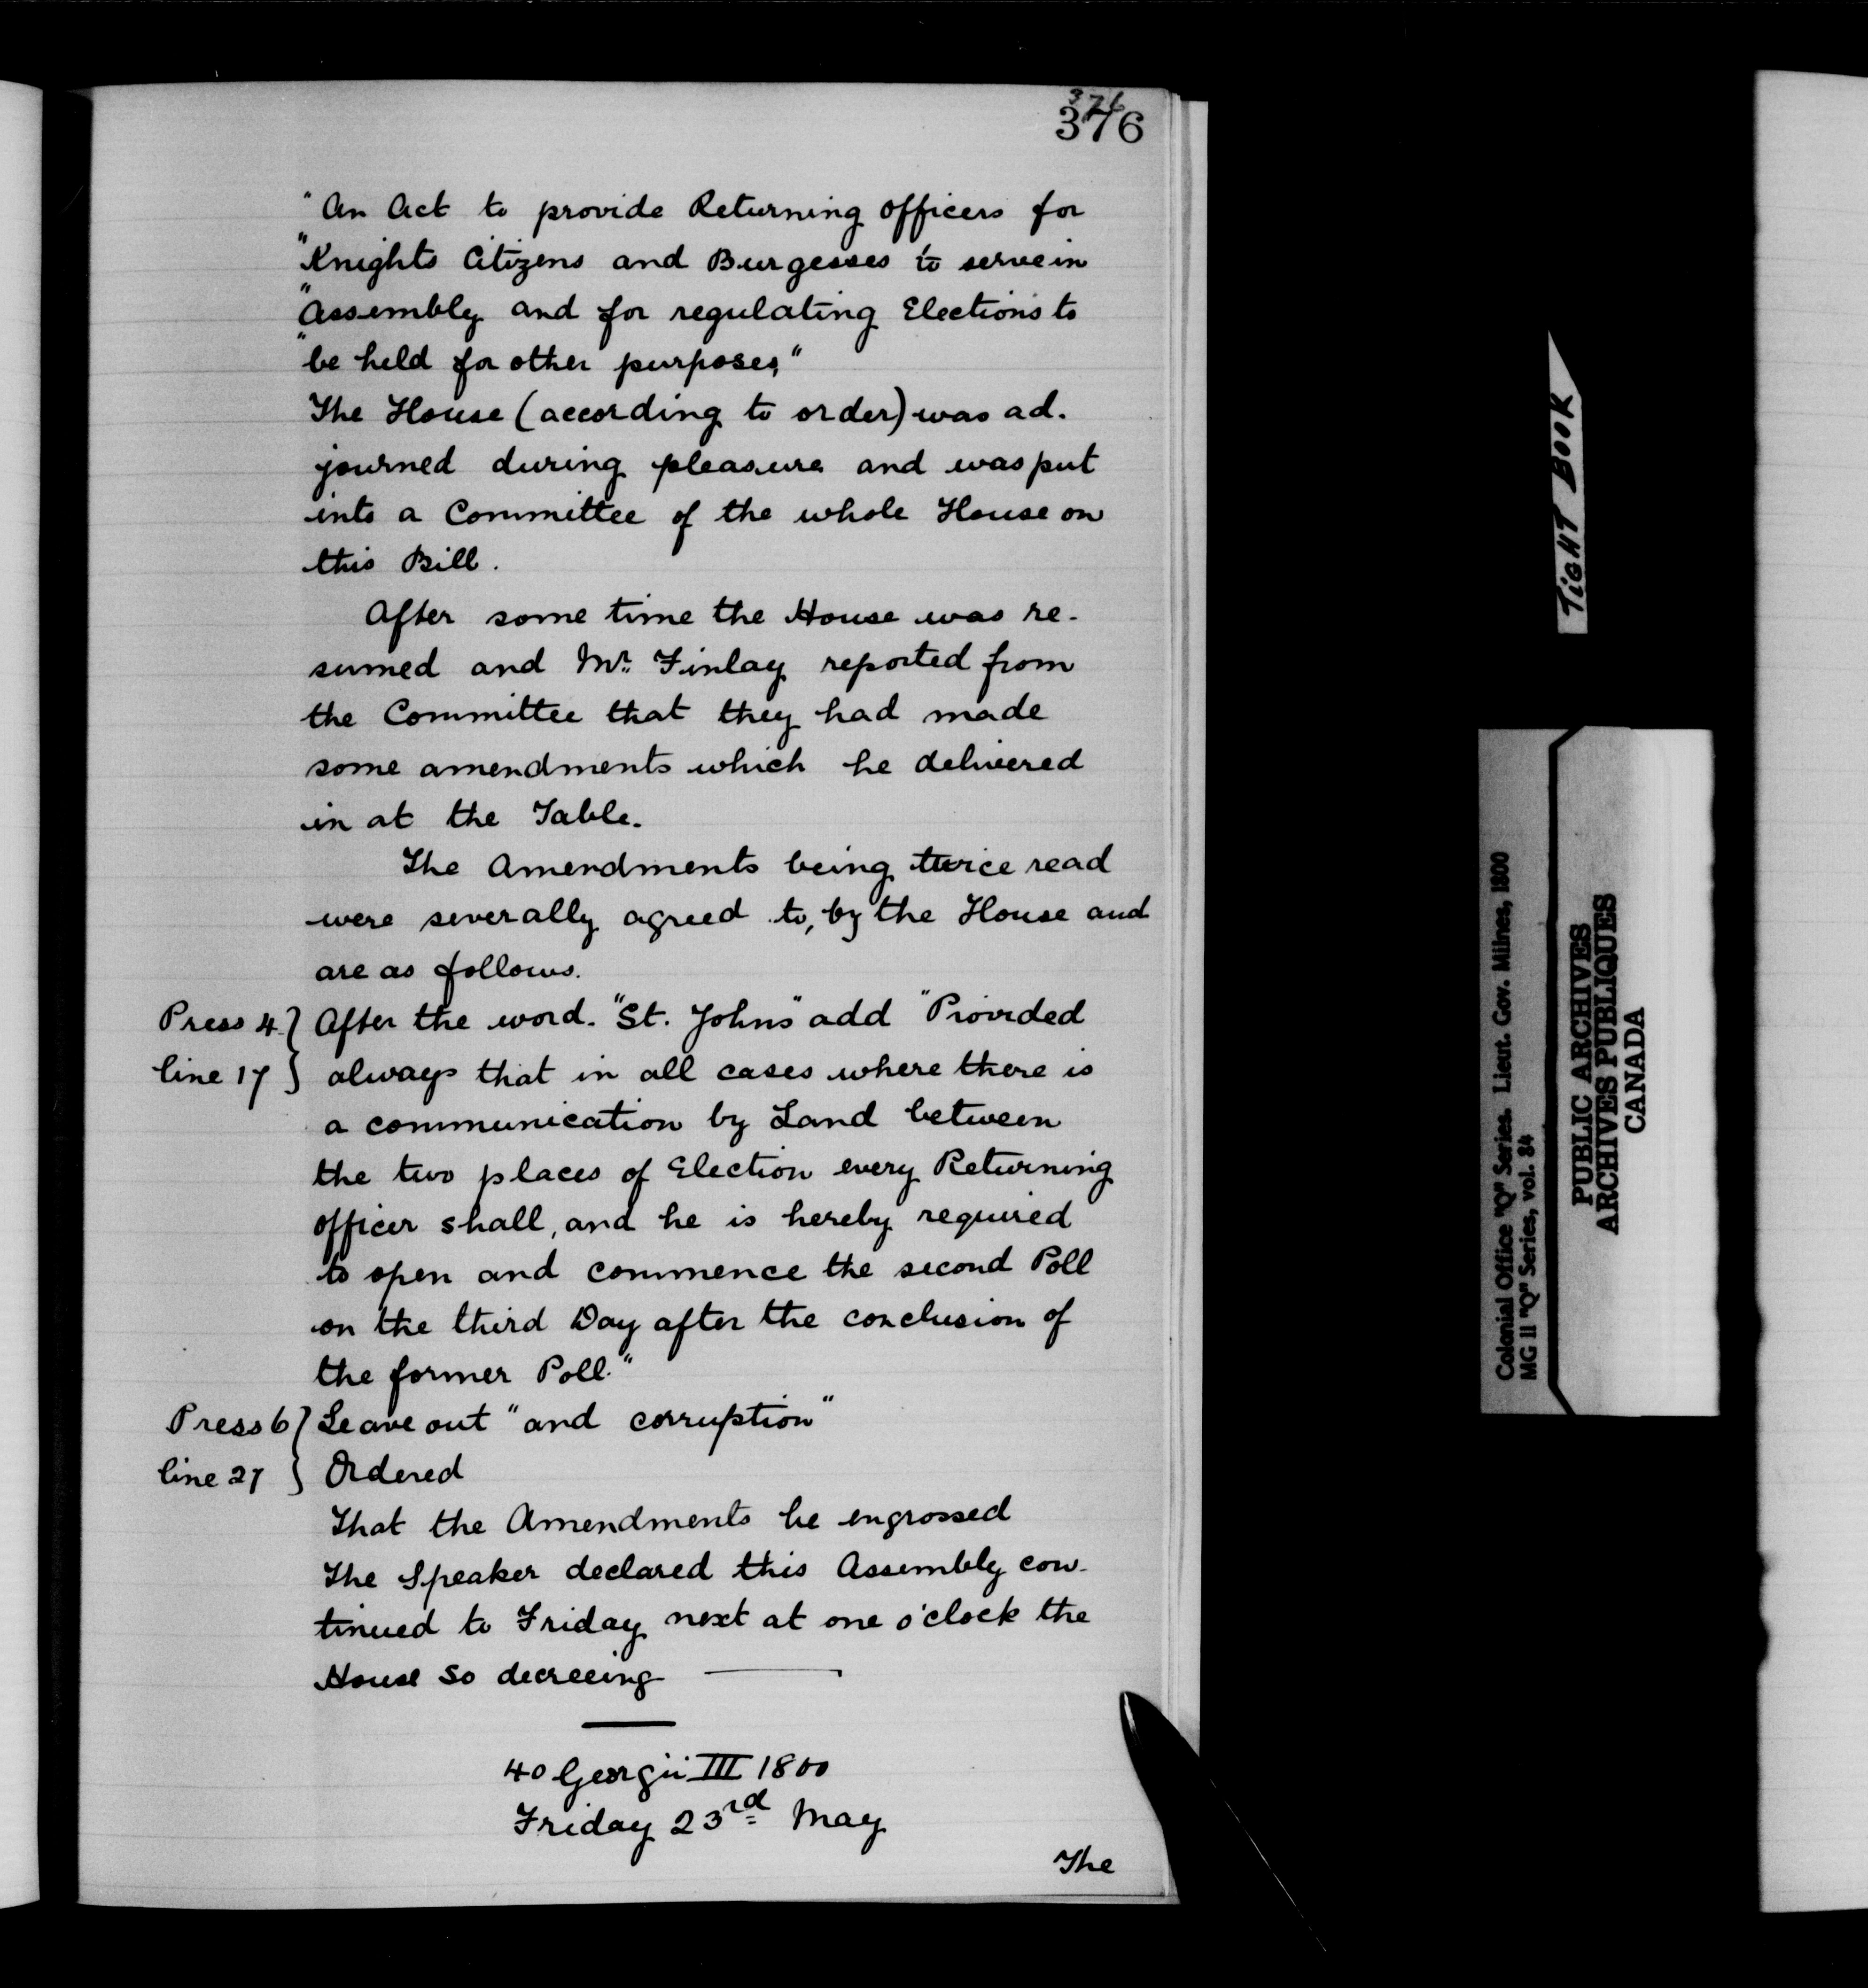 376
376
"An Act to provide Returning officers for
"Knights Citizens and Burgesses to serve in
"Assembly and for regulating Elections to
"be held for other purposes,"
The House (according to order) was ad.
journed during pleasure and was put
into a Committee of the whole House on
this Bill.
After some time the House was re-
sumed and Mr. Finlay reported from
the Committee that they had made
some amendments which he delivered
in at the Table.
The Amendments being twice read
were severally agreed to, by the House and
are as follows.
Press 4 } After the word. "St. Johns" add "Provided
line 17 } always that in all cases where there is
a communication by Land between
the two places of Election every Returning
officer shall, and he is hereby required
to open and commence the second Poll
on the third Day after the conclusion of
the former Poll."
Press 6 } Leave out "and corruption"
line 27 } Ordered
That the Amendments be engrossed
The Speaker declared this Assembly con-
tinued to Friday next at one o'clock the
House so decreeing
40 Georgii III 1800
Friday 23rd May
The
TIGHT BOOK
Colonial Office "Q" Series. Lieut. Gov. Milnes, 1800
MG 11 "Q" Series, vol. 84
PUBLIC ARCHIVES
ARCHIVES PUBLIQUES
CANADA